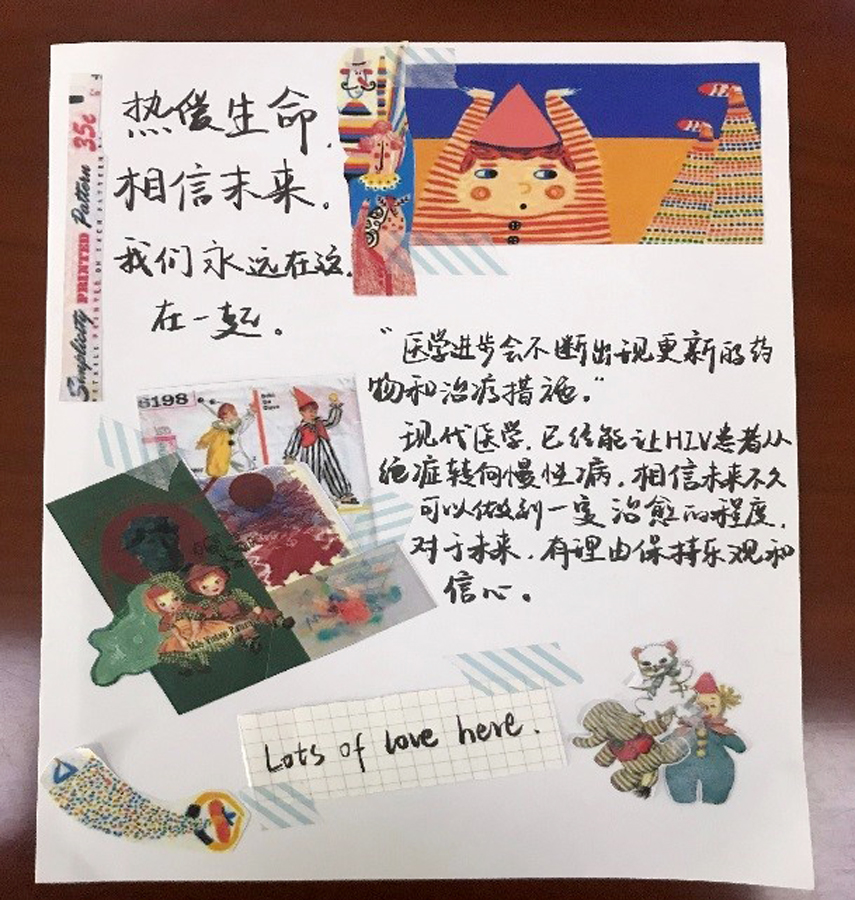 热爱生命，
相信未来。
我们永远在这，
在一起。
"医学进步会不断出现更新的药
物和治疗措施。"
现代医学，已经能让HIV患者从
绝症转向慢性病，相信未来不久
可以做到一定治愈的程度，
对于未来，有理由保持乐观和
信心。
Simplicity PRINTED Pattern 35c
6198
Lots of love here.